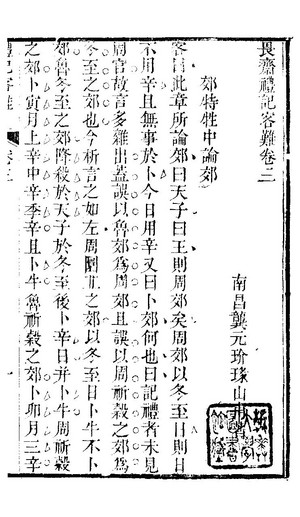 畏齋禮記客難卷二
南昌龔元玠瑑山
郊特牲中論郊
客曰此章所論郊曰天子曰王則周郊矣周郊以冬至日則日
不用辛且無事於卜今日用辛又曰卜郊何也曰記禮者未見
周官故言多雜出蓋誤以魯郊為周郊且誤以周祈穀之郊為
冬至之郊也今析言之如左周圜丘之郊以冬至日卜牛不卜
郊魯冬至之郊降殺於天子於冬至後卜辛日并卜牛周祈穀
之郊卜寅月上辛中辛季辛且卜牛魯祈穀之郊卜卯月三辛